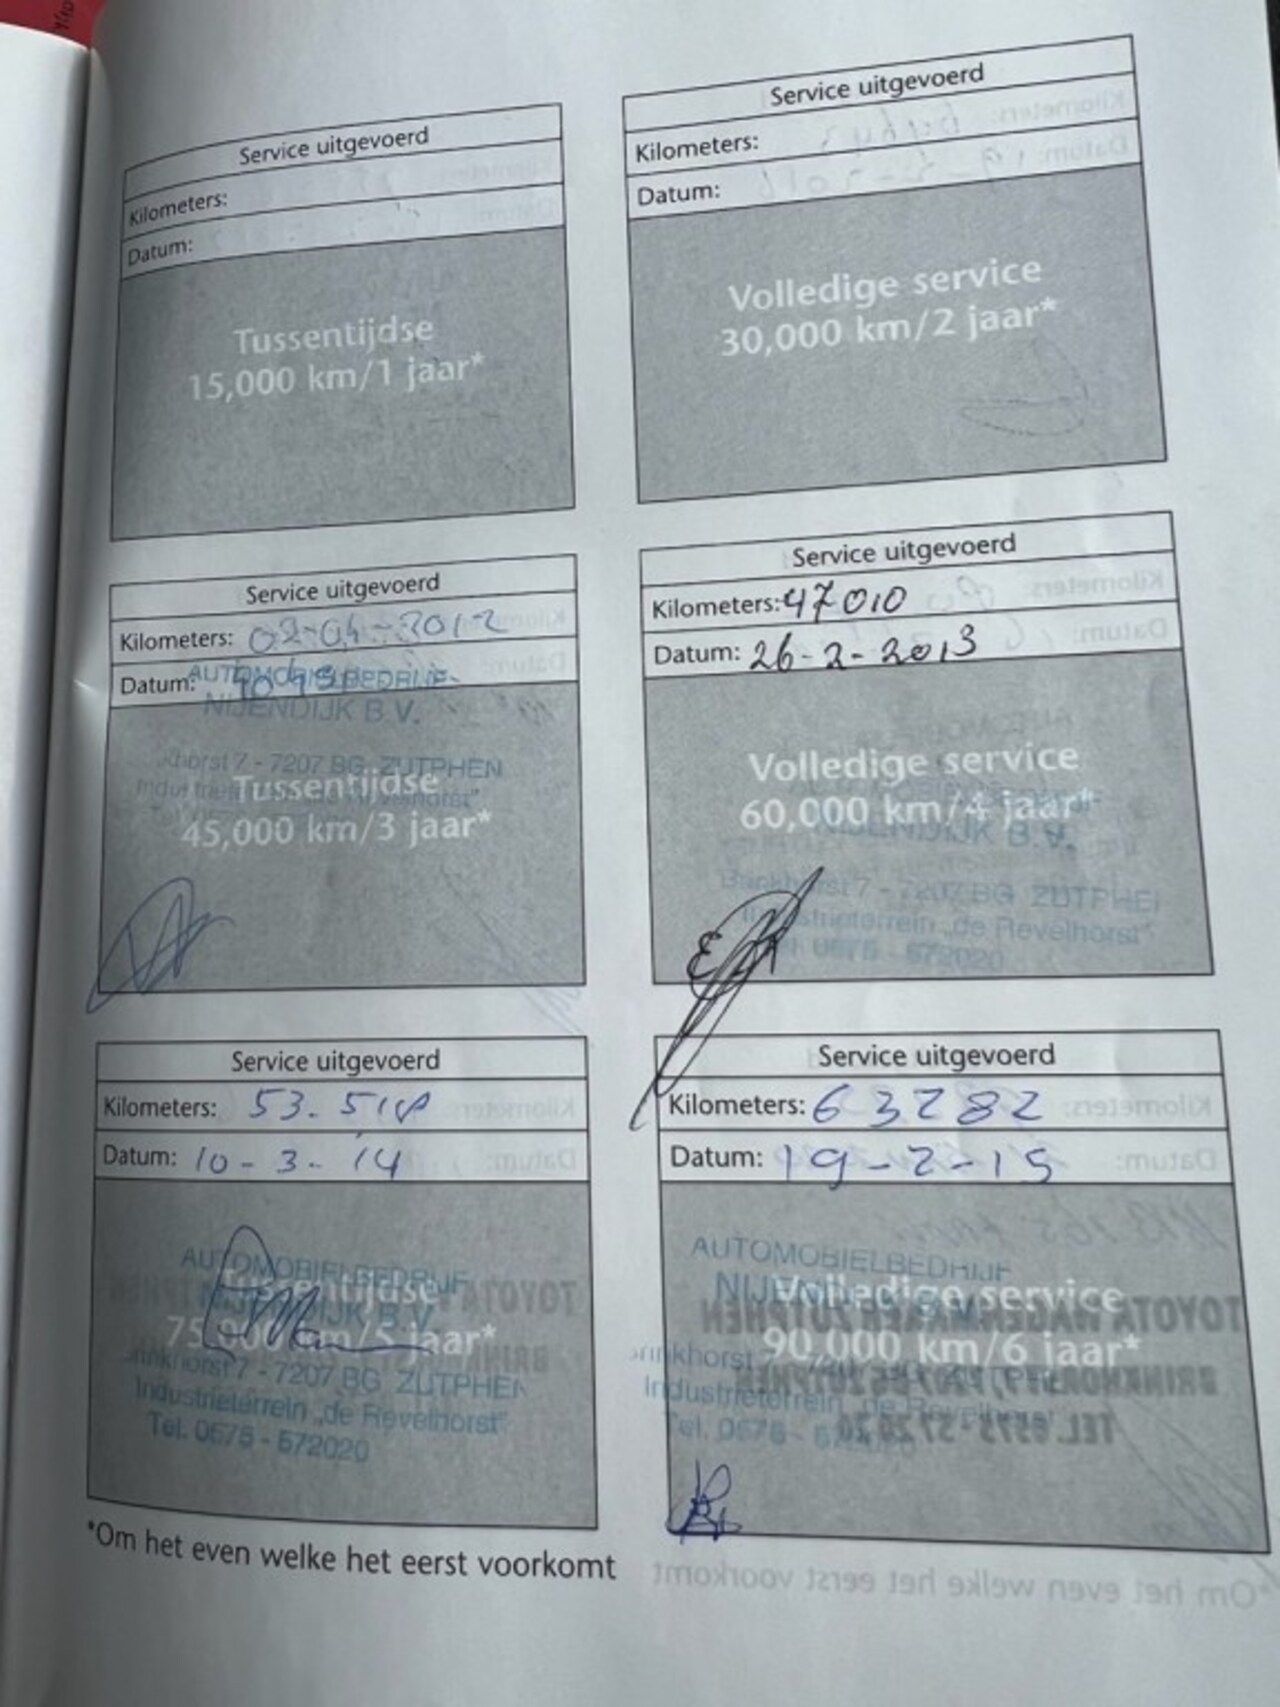 Service uitgevoerd
Kilometers:
Datum:
Tussentijdse
15,000 km/1 jaar*
Service uitgevoerd
Kilometers:
Datum:
Volledige service
30,000 km/2 jaar*
Service uitgevoerd
Kilometers: 02-04-2012
Datum:
AUTOMOBIELBEDRIJF
NIJENDIJK B.V.
7 - 7207 BG ZUTPHEN
Tussentijdse
"de Revelhorst"
45,000 km/3 jaar*
Service uitgevoerd
Kilometers: 47010
Datum: 26-2-2013
Volledige service
60,000 km/4 jaar*
NIJENDIJK B.V.
7 - 7207 BG ZUTPHE
Industrieterrein „de Revelhorst"
Tel. 0575 - 572020
Service uitgevoerd
Kilometers: 53.518
Datum: 10-3-'14
AUTOMOBIELBEDRIJF
Tussentijdse
NIJENDIJK B.V.
75,000 km/5 jaar*
rinkhorst 7 - 7207 BG ZUTPHEN
Industrieterrein „de Revelhorst"
Tel. 0575 - 572020
Service uitgevoerd
Kilometers: 63282
Datum: 19-2-15
AUTOMOBIELBEDRIJF
Volledige service
90,000 km/6 jaar*
rinkhorst
Industrieterrein „de Revelhorst"
Tel. 0575 - 572020
*Om het even welke het eerst voorkomt